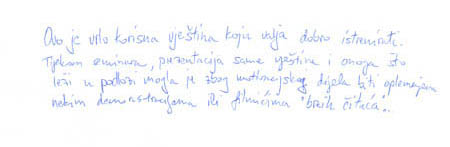 Ovo je vrlo korisna vještina koju valja dobro istrenirati.
Tijekom seminara, prezentacija same vještine i onoga što
leži u podlozi mogla je zbog motivacijskog dijela biti oplemenjena
nekim demonstracijama ili filmićima "brzih čitača".